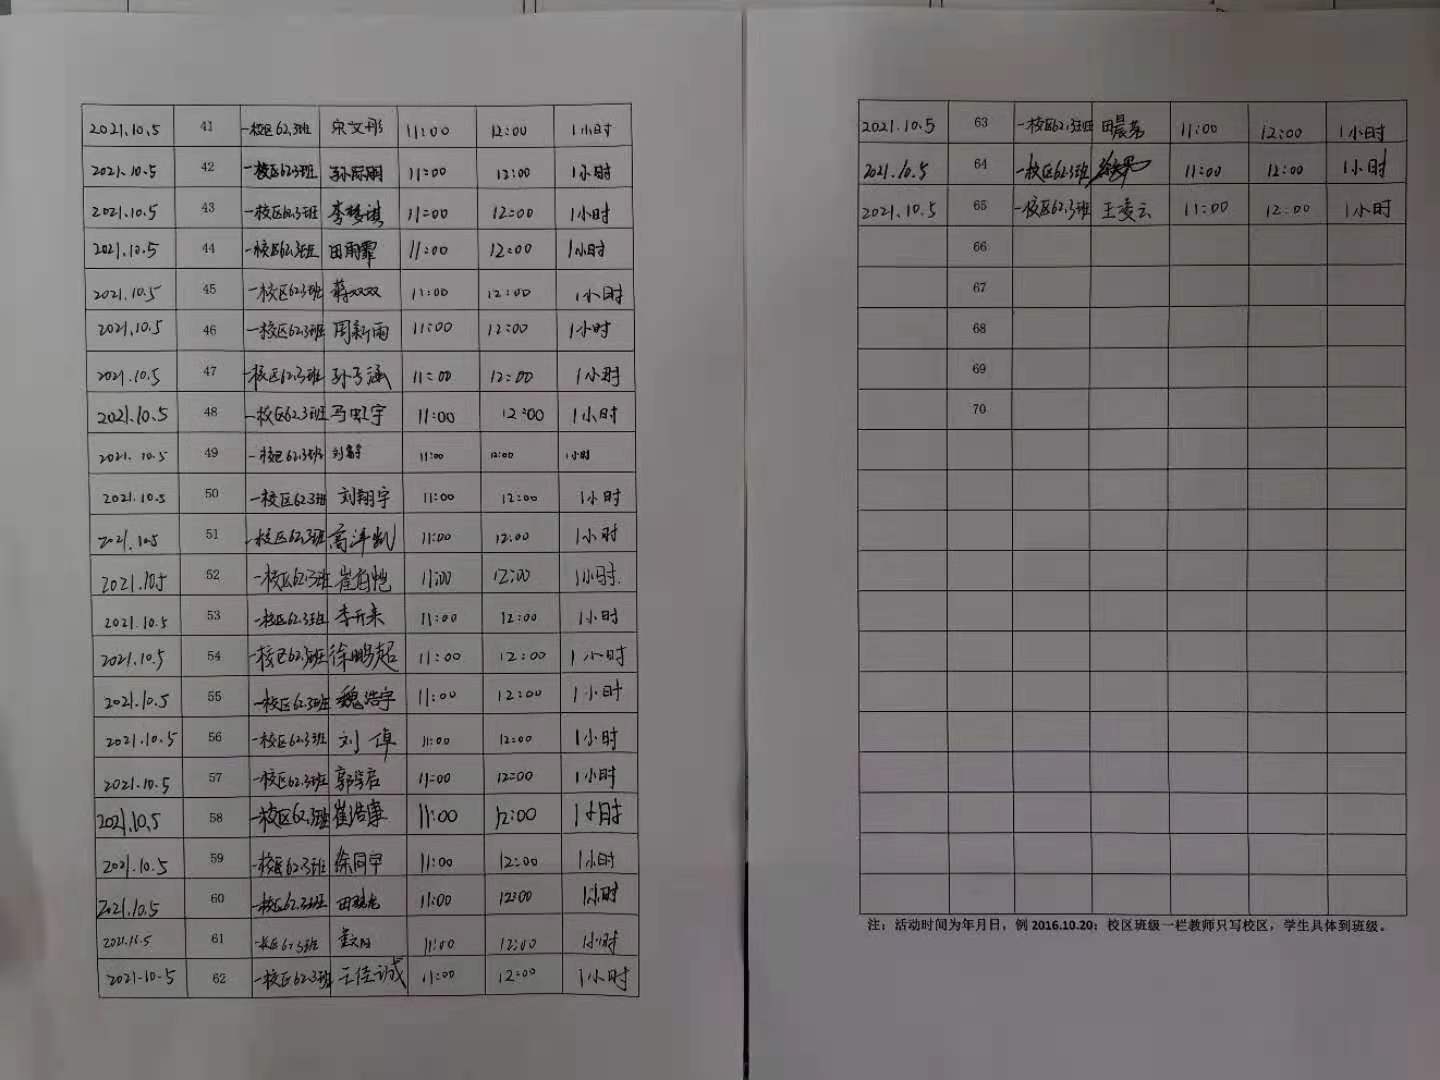 2021.10.5 41 一校区62.3班 宋文彤 11:00 12:00 1小时
2021.10.5 42 一校区62.3班 11:00 12:00 1小时
2021.10.5 43 一校区62.3班 李梦琪 11:00 12:00 1小时
2021.10.5 44 一校区62.3班 田雨霏 11:00 12:00 1小时
2021.10.5 45 一校区62.3班 蒋双双 11:00 12:00 1小时
2021.10.5 46 一校区62.3班 周新雨 11:00 12:00 1小时
2021.10.5 47 一校区62.3班 孙子涵 11:00 12:00 1小时
2021.10.5 48 一校区62.3班 11:00 12:00 1小时
2021.10.5 49 一校区62.3班 11:00 12:00 1小时
2021.10.5 50 一校区62.3班 刘翔宇 11:00 12:00 1小时
2021.10.5 51 一校区62.3班 高洋凯 11:00 12:00 1小时
2021.10.5 52 一校区62.3班 11:00 12:00 1小时
2021.10.5 53 一校区62.3班 李开来 11:00 12:00 1小时
2021.10.5 54 一校区62.3班 徐鹏超 11:00 12:00 1小时
2021.10.5 55 一校区62.3班 魏浩宇 11:00 12:00 1小时
2021.10.5 56 一校区62.3班 刘倬 11:00 12:00 1小时
2021.10.5 57 一校区62.3班 11:00 12:00 1小时
2021.10.5 58 一校区62.3班 崔浩康 11:00 12:00 1小时
2021.10.5 59 一校区62.3班 徐同宇 11:00 12:00 1小时
2021.10.5 60 一校区62.3班 11:00 12:00 1小时
61 一校区62.3班 11:00 12:00 1小时
2021.10.5 62 一校区62.3班 王佳诚 11:00 12:00 1小时
2021.10.5 63 一校区62.3班 11:00 12:00 1小时
2021.10.5 64 一校区62.3班 11:00 12:00 1小时
2021.10.5 65 一校区62.3班 王凌云 11:00 12:00 1小时
66
67
68
69
70
注：活动时间为年月日，例 2016.10.20；校区班级一栏教师只写校区，学生具体到班级。